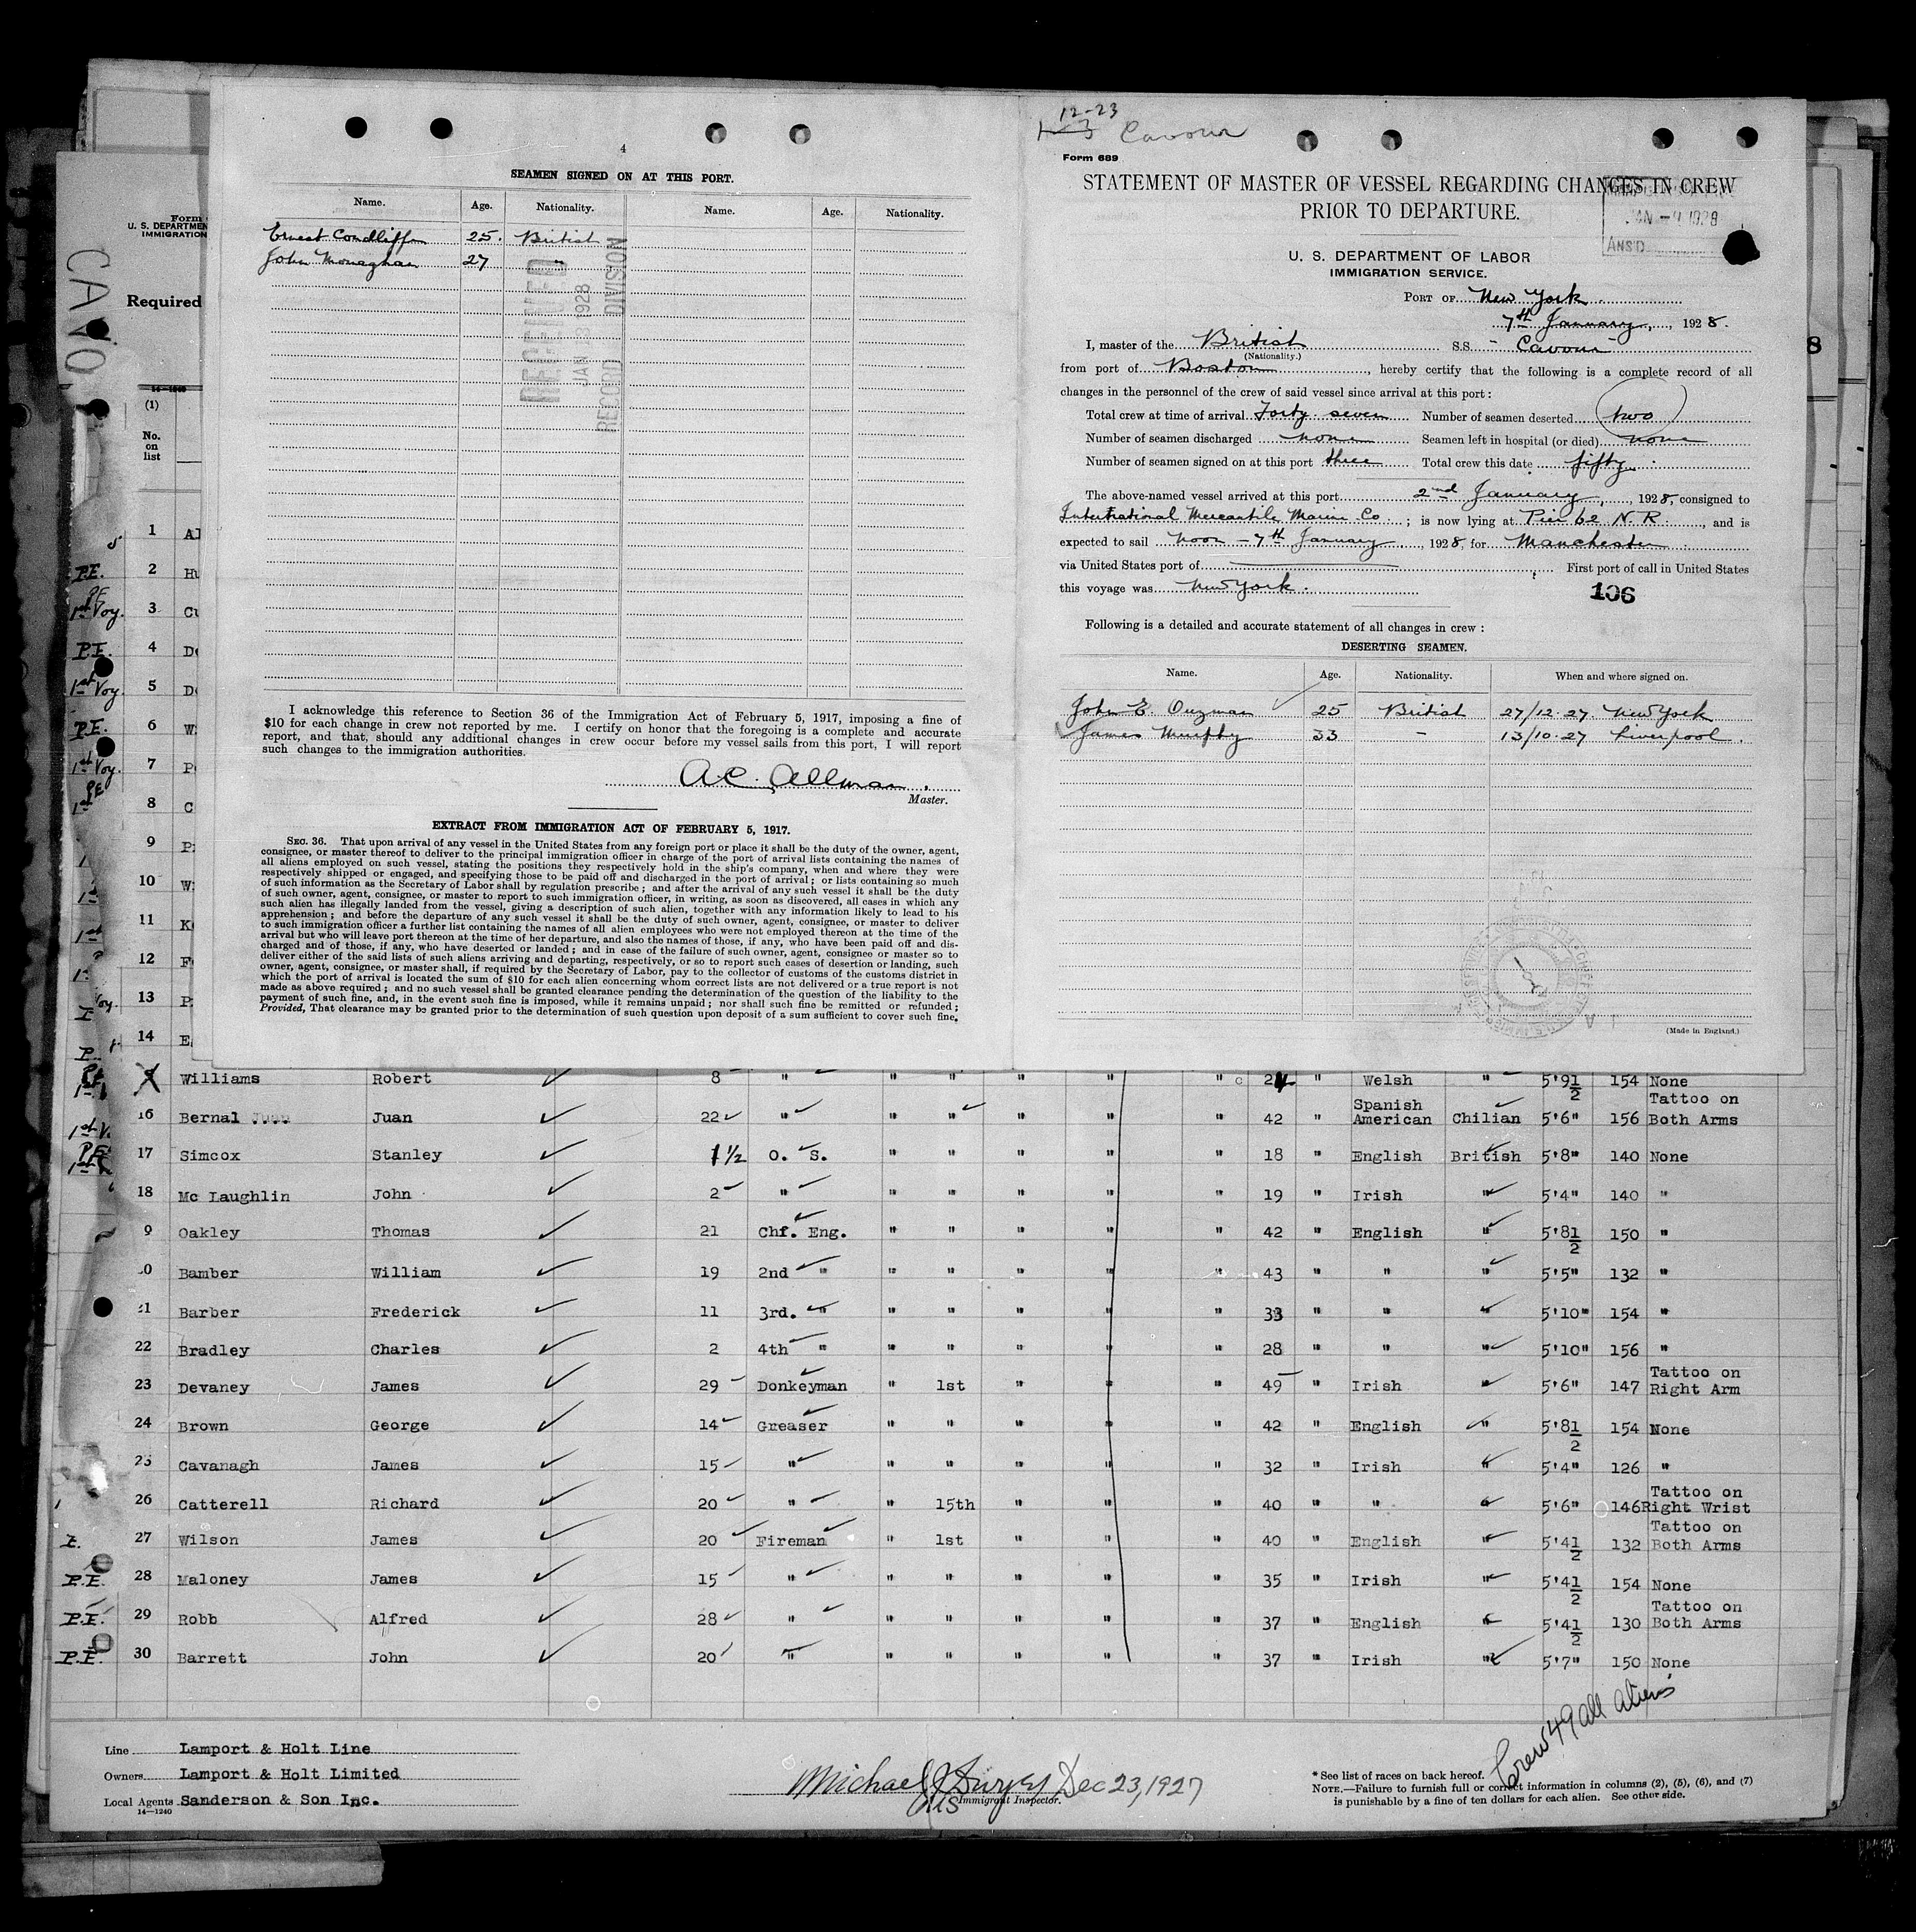 4
SEAMEN SIGNED ON AT THIS PORT.
Name. Age. Nationality. Name. Age. Nationality.
Ernest Condliffe 25. British
John Monaghan 27 "
RECEIVED
JAN 13 1928
RECORD DIVISION
I acknowledge this reference to Section 36 of the Immigration Act of February 5, 1917, imposing a fine of
$10 for each change in crew not reported by me. I certify on honor that the foregoing is a complete and accurate
report, and that, should any additional changes in crew occur before my vessel sails from this port, I will report
such changes to the immigration authorities.
A.C. Allman.
Master.
EXTRACT FROM IMMIGRATION ACT OF FEBRUARY 5, 1917.
SEC. 36. That upon arrival of any vessel in the United States from any foreign port or place it shall be the duty of the owner, agent,
consignee, or master thereof to deliver to the principal immigration officer in charge of the port of arrival lists containing the names of
all aliens employed on such vessel, stating the positions they respectively hold in the ship's company, when and where they were
respectively shipped or engaged, and specifying those to be paid off and discharged in the port of arrival; or lists containing so much
of such information as the Secretary of Labor shall by regulation prescribe; and after the arrival of any such vessel it shall be the duty
of such owner, agent, consignee, or master to report to such immigration officer, in writing, as soon as discovered, all cases in which any
such alien has illegally landed from the vessel, giving a description of such alien, together with any information likely to lead to his
apprehension; and before the departure of any such vessel it shall be the duty of such owner, agent, consignee, or master to deliver
to such immigration officer a further list containing the names of all alien employees who were not employed thereon at the time of the
arrival but who will leave port thereon at the time of her departure, and also the names of those, if any, who have been paid off and dis-
charged and of those, if any, who have deserted or landed; and in case of the failure of such owner, agent, consignee or master so to
deliver either of the said lists of such aliens arriving and departing, respectively, or so to report such cases of desertion or landing, such
owner, agent, consignee, or master shall, if required by the Secretary of Labor, pay to the collector of customs of the customs district in
which the port of arrival is located the sum of $10 for each alien concerning whom correct lists are not delivered or a true report is not
made as above required; and no such vessel shall be granted clearance pending the determination of the question of the liability to the
payment of such fine, and, in the event such fine is imposed, while it remains unpaid; nor shall such fine be remitted or refunded;
Provided, That clearance may be granted prior to the determination of such question upon deposit of a sum sufficient to cover such fine.
12-23
Cavour
Form 689
STATEMENT OF MASTER OF VESSEL REGARDING CHANGES IN CREW
PRIOR TO DEPARTURE.
JAN -9 1928
ANS'D
U. S. DEPARTMENT OF LABOR
IMMIGRATION SERVICE.
PORT OF New York.
7th January, 1928.
I, master of the British S.S. "Cavour"
(Nationality.)
from port of Boston, hereby certify that the following is a complete record of all
changes in the personnel of the crew of said vessel since arrival at this port:
Total crew at time of arrival Forty seven Number of seamen deserted two
Number of seamen discharged none Seamen left in hospital (or died) none
Number of seamen signed on at this port three Total crew this date fifty.
The above-named vessel arrived at this port 2nd January, 1928, consigned to
International Mercantile Marine Co; is now lying at Pier 62 N.R., and is
expected to sail noon - 7th January, 1928, for Manchester
via United States port of First port of call in United States
this voyage was New York.
106
Following is a detailed and accurate statement of all changes in crew:
DESERTING SEAMEN.
Name. Age. Nationality. When and where signed on.
John E. Ouzman 25 British 27/12.27 New York
James Murphy 33 - 13/10.27 Liverpool.
(Made in England.)
CAVO
Form
U. S. DEPARTMEN
IMMIGRATION
Required
8
14-1240
(1)
No.
on
list
1 Al
P.E. 2 Hu
P.E. 1st Voy. 3 Cu
P.E. 4 De
1st Voy. 5 De
P.E. 6 W
1st Voy. 7 P
8 C
9 P
10 W
11 K
12 F
13 P
14 E
Williams Robert 8 " " " " " " 24 " Welsh " 5'9½ 154 None
16 Bernal Juan Juan 22 " " " " " " 42 " Spanish American Chilian 5'6" 156 Tattoo on Both Arms
17 Simcox Stanley 1½ O. S. " " " " " 18 " English British 5'8" 140 None
18 Mc Laughlin John 2 " " " " " " 19 " Irish " 5'4" 140 "
9 Oakley Thomas 21 Chf. Eng. " " " " " 42 " English " 5'8½ 150 "
0 Bamber William 19 2nd " " " " " " 43 " " " 5'5" 132 "
1 Barber Frederick 11 3rd. " " " " " " 33 " " " 5'10" 154 "
22 Bradley Charles 2 4th " " " " " " 28 " " " 5'10" 156 "
23 Devaney James 29 Donkeyman " 1st " " " 49 " Irish " 5'6" 147 Tattoo on Right Arm
24 Brown George 14 Greaser " " " " " 42 " English " 5'8½ 154 None
25 Cavanagh James 15 " " " " " " 32 " Irish " 5'4" 126 "
26 Catterell Richard 20 " " 15th " " " 40 " " " 5'6" 146 Tattoo on Right Wrist
27 Wilson James 20 Fireman " 1st " " " 40 " English " 5'4½ 132 Tattoo on Both Arms
P.E. 28 Maloney James 15 " " " " " " 35 " Irish " 5'4½ 154 None
P.E. 29 Robb Alfred 28 " " " " " " 37 " English " 5'4½ 130 Tattoo on Both Arms
P.E. 30 Barrett John 20 " " " " " " 37 " Irish " 5'7" 150 None
Crew 49 all aliens
Line Lamport & Holt Line
Owners Lamport & Holt Limited
Local Agents Sanderson & Son Inc.
14-1240
Michael J Dec 23, 1927
Immigrant Inspector.
* See list of races on back hereof.
NOTE.—Failure to furnish full or correct information in columns (2), (5), (6), and (7)
is punishable by a fine of ten dollars for each alien. See other side.